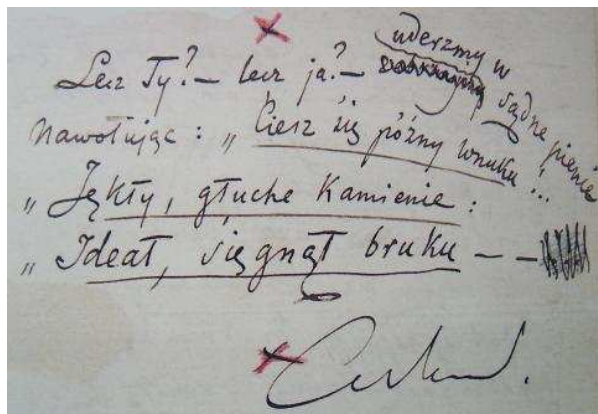 Lecz Ty? — lecz ja? — uderzmy w sądne pienie
Nawołując : „ Ciesz się późny wnuku!...
„ Jękły, głuche Kamienie :
„ Ideał, sięgnął bruku — —